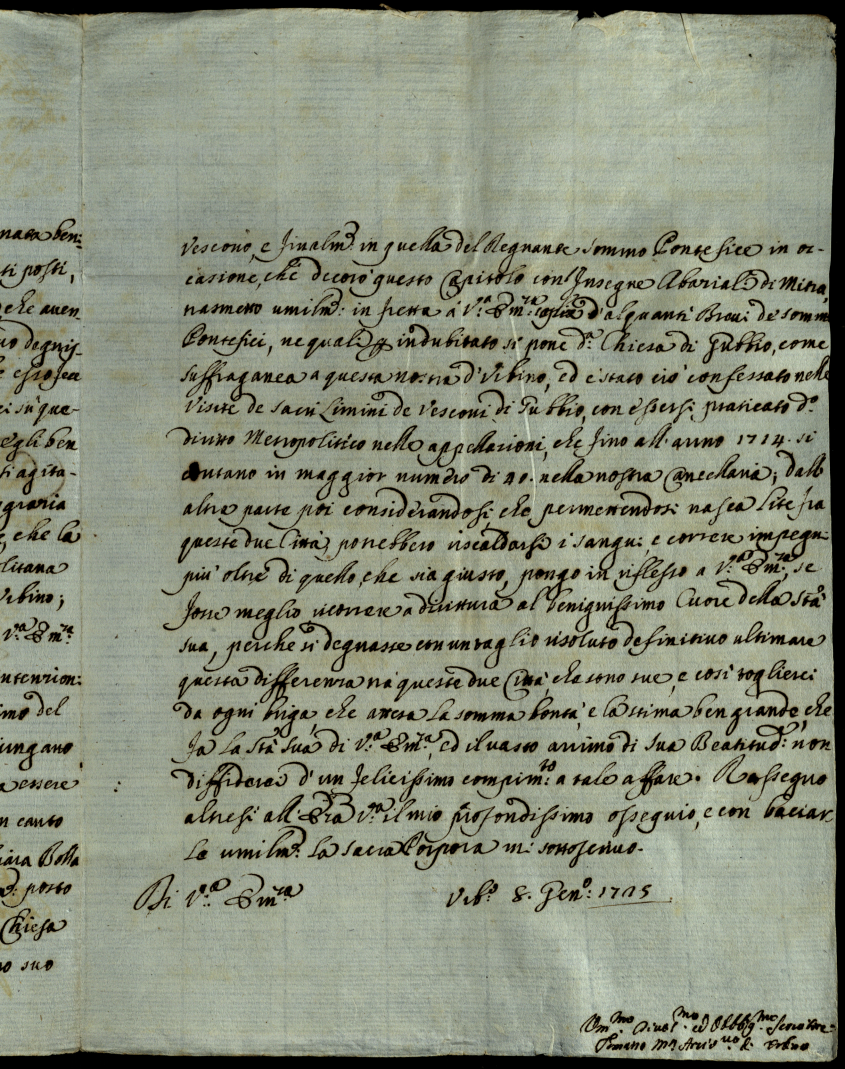 nata ben:
ti posti,
che aven
uo degnis-
e esposea
ci sù que-
egli ben
ti agita-
ggravia
che la
litana
Vrbino;
V.ª Em.ᶻᵃ
ntenzion:
imo del
iungano
a essere
n canto
iara Bolla
posto
Chiesa
no suo
Vescovo, e finalm.ᵉ in quella del Regnante sommo Pontefice in oc-
casione, che decorò questo Capitolo con l'Insegne Abaziali di Mitra,
trasmetto umilm.ᵉ in fretta à V.ª Em.ᶻᵃ copia d'alquanti Brevi de sommi
Pontefici, ne quali p indubitato si pone d.ª Chiesa di Gubbio, come
suffraganea a questa nostra d'Vrbino, ed è stato ciò confessato nelle
Visite de sacri Limini de Vescovi di Gubbio, con essersi praticato d.º
diritto Metropolitico nelle appellazioni, che fino all'anno 1714. si
contano in maggior numero di 40. nella nostra Cancellaria; dall'
altra parte poi considerandosi, che permettendosi nasca lite fra
queste due Città, potrebbero riscaldarsi i sangui, e correre impegni
più oltre di quello, che sia giusto, pongo in riflesso a V.ª Em.ᶻᵃ, se
fosse meglio ricorrere a dirittura al benignissimo Cuore della Stà
sua, perche si degnasse con un taglio risoluto definitivo ultimare
questa differenza trà queste due Città, che sono sue, e così toglierci
da ogni briga, che attesa la somma bontà, e la stima ben grande, che
fa la Stà Sua di V.ª Em.ᶻᵃ, ed il vasto animo di sua Beatitud.ᵉ non
diffiderei d'un felicissimo compim.ᵗᵒ a tale affare. Rassegno
altresì all' Em.ᶻᵃ V.ª il mio profondissimo ossequio, e con baciar
le umilm.ᵉ la sacra Porpora mi sottoscrivo.
Di V.ª Em.ᶻᵃ Vrb.º 8. Gen.º 1725
Vm.ᵐᵒ Divot.ᵐᵒ ed Obblig.ᵐᵒ Servitore
Arcivᵛᵒ di Urbino